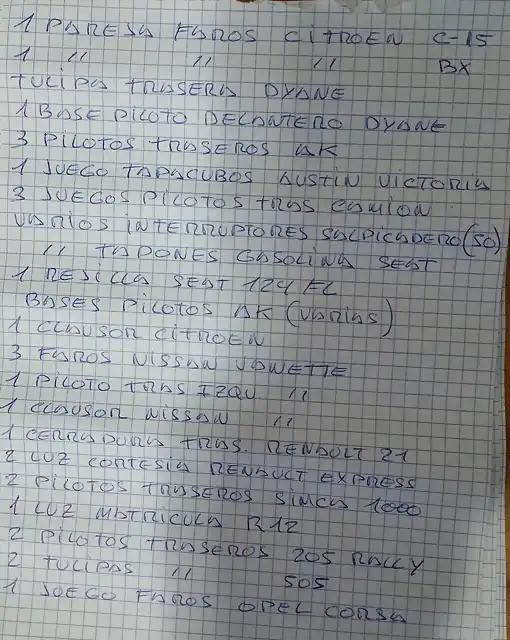 1 PAREJA FAROS CITROEN C-15
1 " " " BX
TULIPA TRASERA DYANE
1 BASE PILOTO DELANTERO DYANE
3 PILOTOS TRASEROS AK
1 JUEGO TAPACUBOS AUSTIN VICTORIA
3 JUEGOS PILOTOS TRAS CAMION
VARIOS INTERRUPTORES SALPICADERO (50)
" TAPONES GASOLINA SEAT
1 REJILLA SEAT 124 FL
BASES PILOTOS AK (VARIAS)
1 CLAUSOR CITROEN
3 FAROS NISSAN VANETTE
1 PILOTO TRAS IZQU "
1 CLAUSOR NISSAN "
1 CERRADURA TRAS. RENAULT 21
2 LUZ CORTESIA RENAULT EXPRESS
2 PILOTOS TRASEROS SIMCA 1000
1 LUZ MATRICULA R12
2 PILOTOS TRASEROS 205 RALLY
2 TULIPAS " 505
1 JUEGO FAROS OPEL CORSA